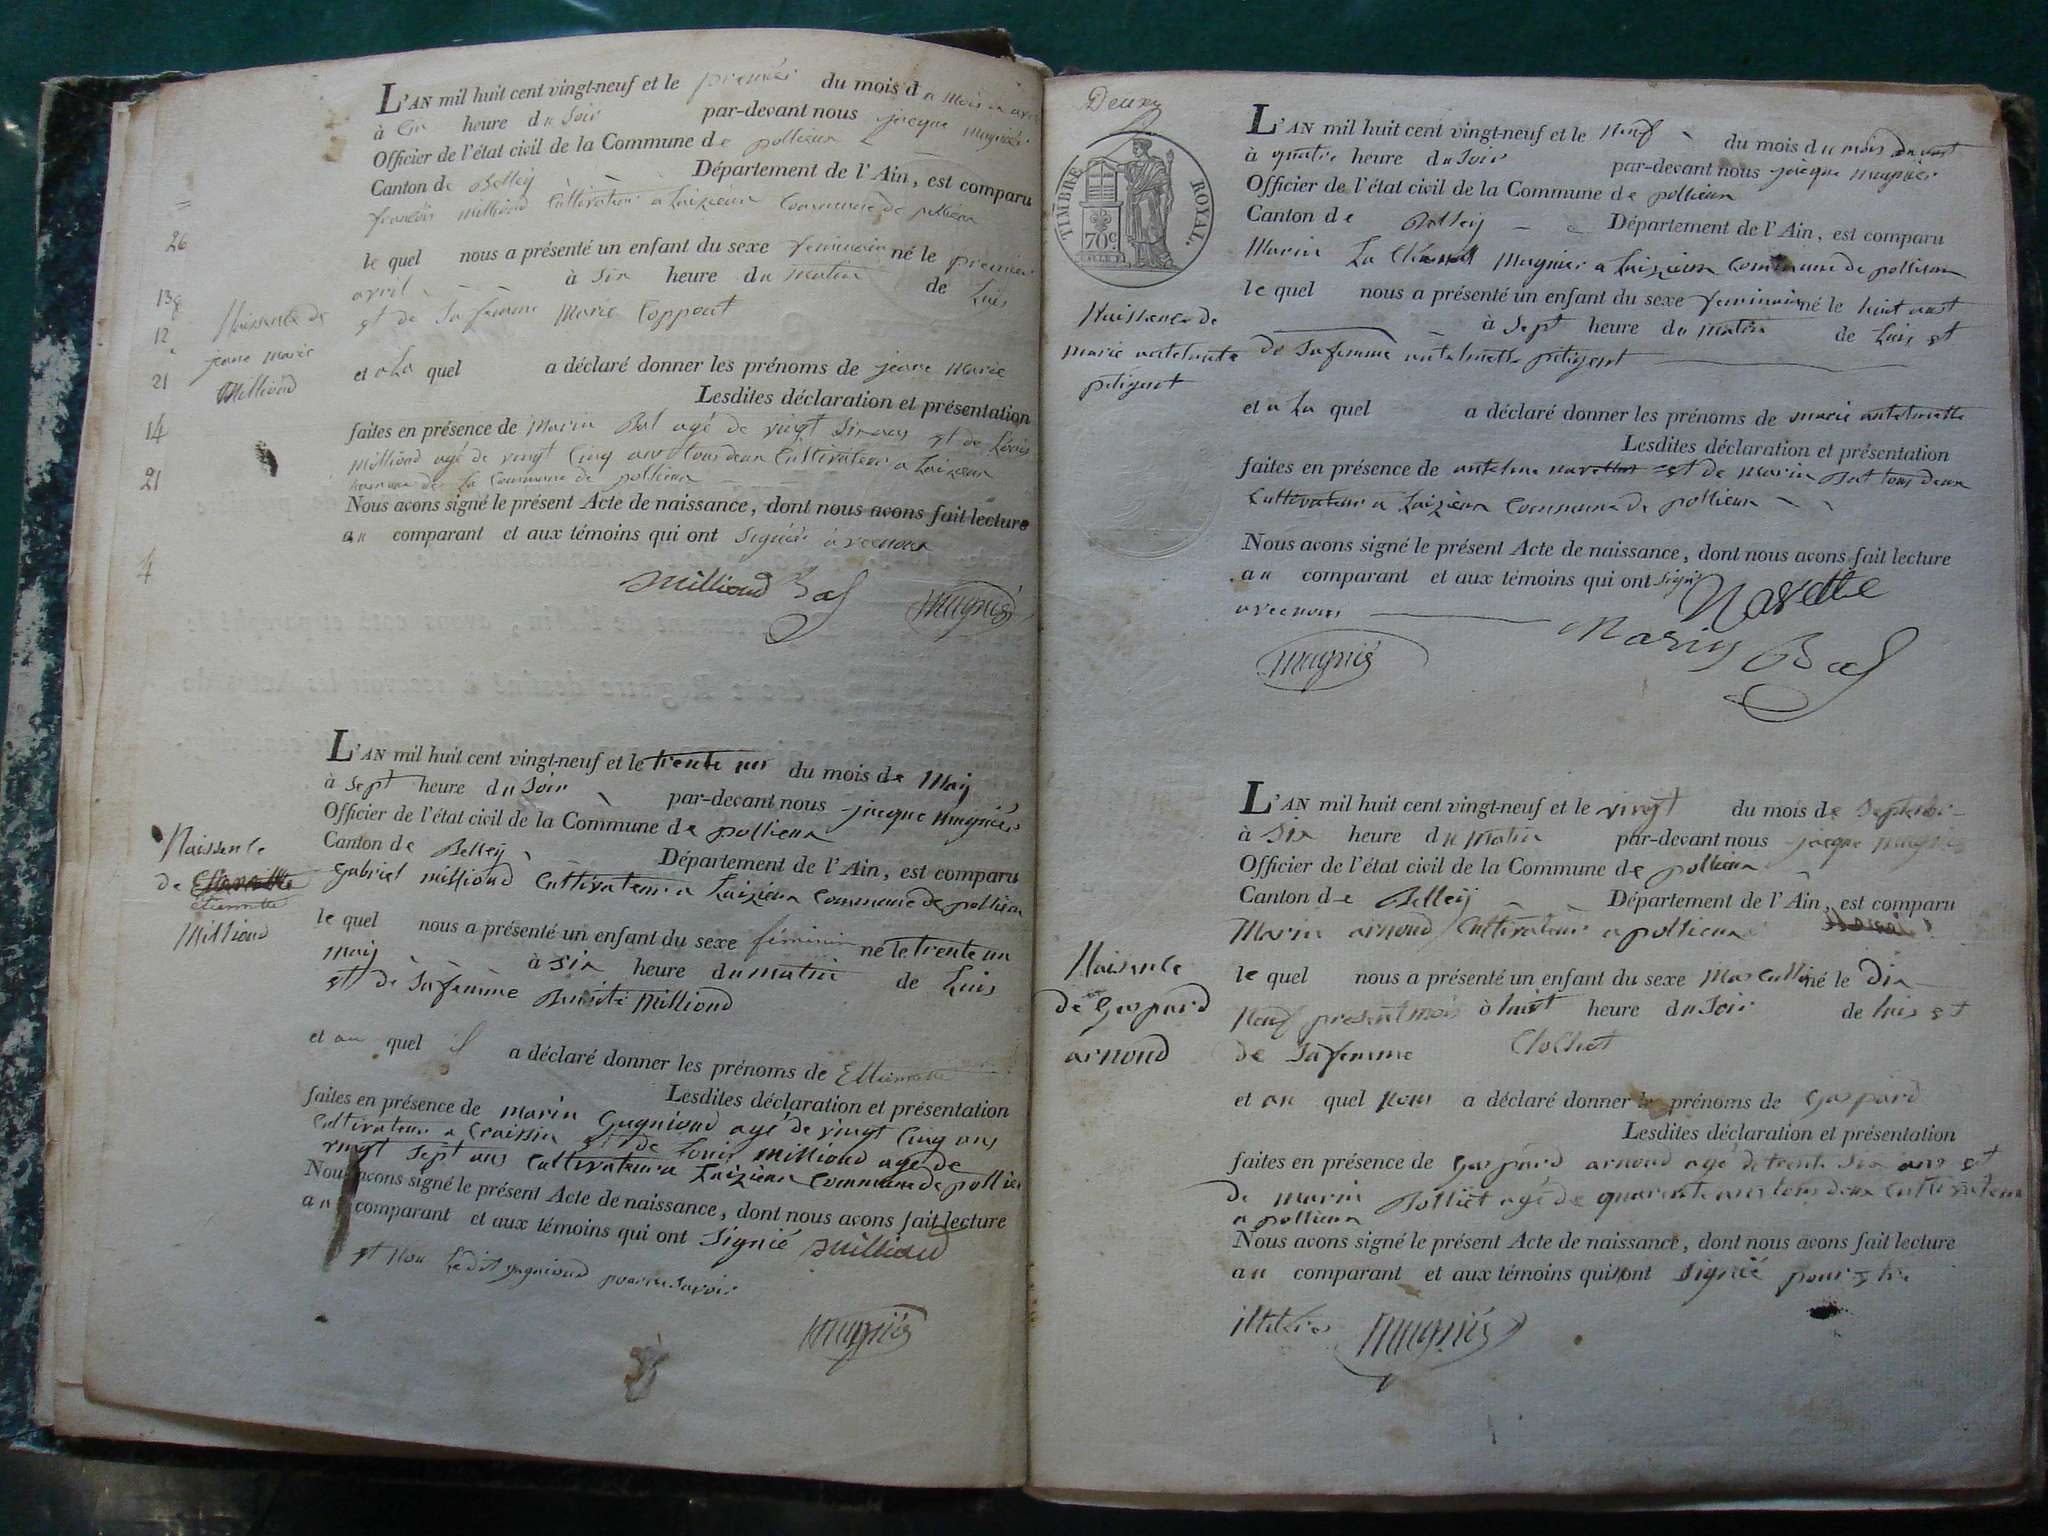 L'AN mil huit cent vingt-neuf et le premier du mois du mois
à heure du soir par-devant nous jacque magnier
Officier de l'état civil de la Commune de pollieux
Canton de Belley Département de l'Ain, est comparu
françois milliond Cultivateur a Laizieux Commune de pollieux
le quel nous a présenté un enfant du sexe feminin né le premier
avril à six heure du matin de Luis
et de sa femme Marie Coppout
et a La quel a déclaré donner les prénoms de jeane marie
Lesdites déclaration et présentation
faites en présence de Marin Bal agé de vingt six ans et de Louis
milliond agé de vingt Cinq ans tous deux Cultivateur a Laizieux
de la Commune de pollieux
Nous avons signé le présent Acte de naissance, dont nous avons fait lecture
au comparant et aux témoins qui ont signéé avec nous
Milliond Bal magnié
26
138
12
21
14
21
4
Naissence de
jeane marie
Milliond
L'AN mil huit cent vingt-neuf et le trente un du mois de May
à sept heure du soir par-devant nous jacque magniér
Officier de l'état civil de la Commune de pollieux
Canton de Belley Département de l'Ain, est comparu
gabriel milliond Cultivateur a Laizieux Commune de pollieux
le quel nous a présenté un enfant du sexe féminin né le trente un
may à six heure du matin de Luis
et de sa femme Benoite Milliond
et au quel il a déclaré donner les prénoms de Ettiennette
Lesdites déclaration et présentation
faites en présence de marin Gugniond agé de vingt Cinq ans
Cultivateur a Craissin et de Louis milliond agé de
vingt sept ans Cultivateur a Laizieux Commune de pollieux
Nous avons signé le présent Acte de naissance, dont nous avons fait lecture
au comparant et aux témoins qui ont signié Milliond
et non Ledit gugniond pour ne savoir
magniés
Naissence
de
etiennette
Milliond
Deux
TIMBRE ROYAL.
70c
L'AN mil huit cent vingt-neuf et le Neuf du mois du mois daout
à quatre heure du soir par-devant nous jacque magnier
Officier de l'état civil de la Commune de pollieux
Canton de Belley Département de l'Ain, est comparu
Marin Magnier a Laizieux Commune de pollieux
le quel nous a présenté un enfant du sexe feminin né le huit aout
à sept heure du matin de Luis et
de sa femme antelmette pitignot
et a La quel a déclaré donner les prénoms de marie antelmette
Lesdites déclaration et présentation
faites en présence de antelme navette et de marin Bal tous deux
Cultivateur a Laizieux Commune de pollieux
Nous avons signé le présent Acte de naissance, dont nous avons fait lecture
au comparant et aux témoins qui ont signé Navette
avec nous
Marin Bal
magniés
Naissence de
marie antelmette
pitignot
L'AN mil huit cent vingt-neuf et le vingt du mois de septembre
à six heure du matin par-devant nous jacque magnié
Officier de l'état civil de la Commune de pollieux
Canton de Belley Département de l'Ain, est comparu
Marin arnoud Cultivateur a pollieux
le quel nous a présenté un enfant du sexe Masculin né le Dix
Neuf present mois à huit heure du soir de luis et
de sa femme Clochet
et au quel nous a déclaré donner les prénoms de gaspard
Lesdites déclaration et présentation
faites en présence de gaspard arnoud agé de trente six ans et
de marin Polliet agé de quarente ans tous deux Cultivateur
a pollieux
Nous avons signé le présent Acte de naissance, dont nous avons fait lecture
au comparant et aux témoins qui nont signéé pour etre
illitérés magniés
Naissence
de Gaspard
arnoud